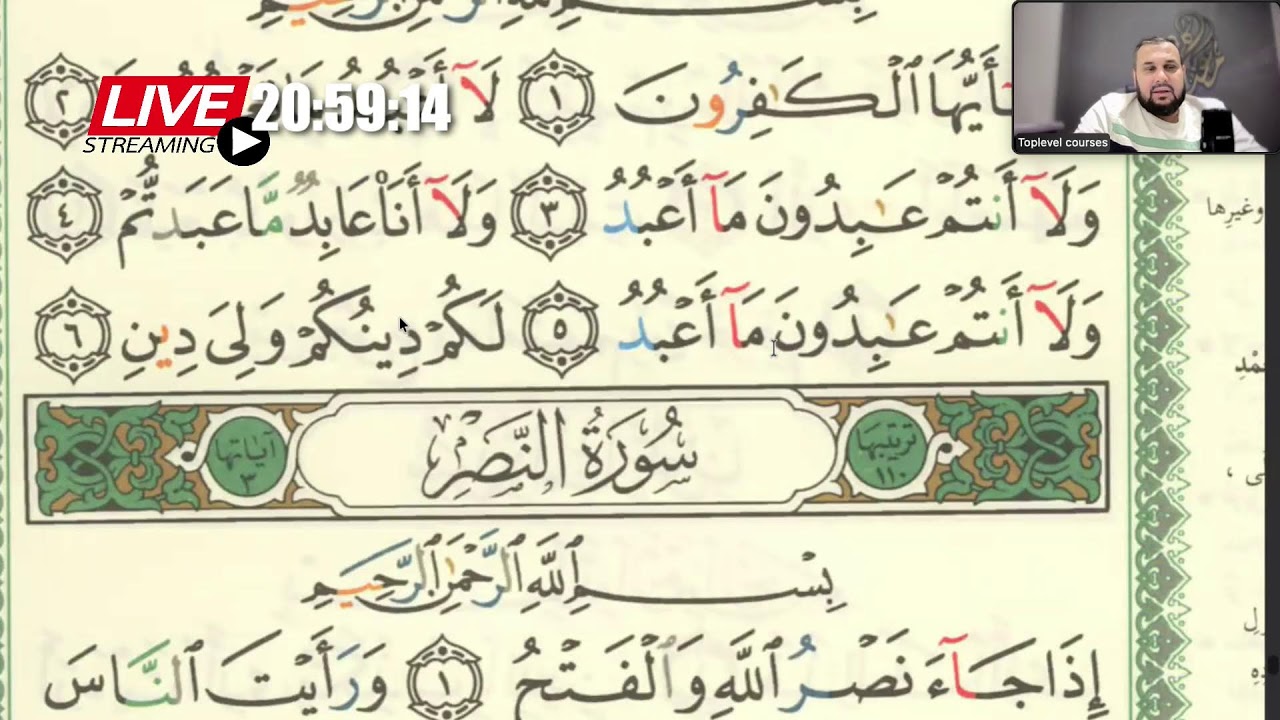 بِسْمِ ٱللَّهِ ٱلرَّحْمَٰنِ ٱلرَّحِيمِ
ٱلْكَٰفِرُونَ ١ لَآ ٢
LIVE 20:59:14
STREAMING
Toplevel courses
وَلَآ أَنتُمْ عَٰبِدُونَ مَآ أَعْبُدُ ٣ وَلَآ أَنَا۠ عَابِدٌ مَّا عَبَدتُّمْ ٤
وغيرِها
وَلَآ أَنتُمْ عَٰبِدُونَ مَآ أَعْبُدُ ٥ لَكُمْ دِينُكُمْ وَلِىَ دِينِ ٦
ترتيبها ١١٠ سُورَةُ النَّصْرِ آياتها ٣
بِسْمِ ٱللَّهِ ٱلرَّحْمَٰنِ ٱلرَّحِيمِ
إِذَا جَآءَ نَصْرُ ٱللَّهِ وَٱلْفَتْحُ ١ وَرَأَيْتَ ٱلنَّاسَ